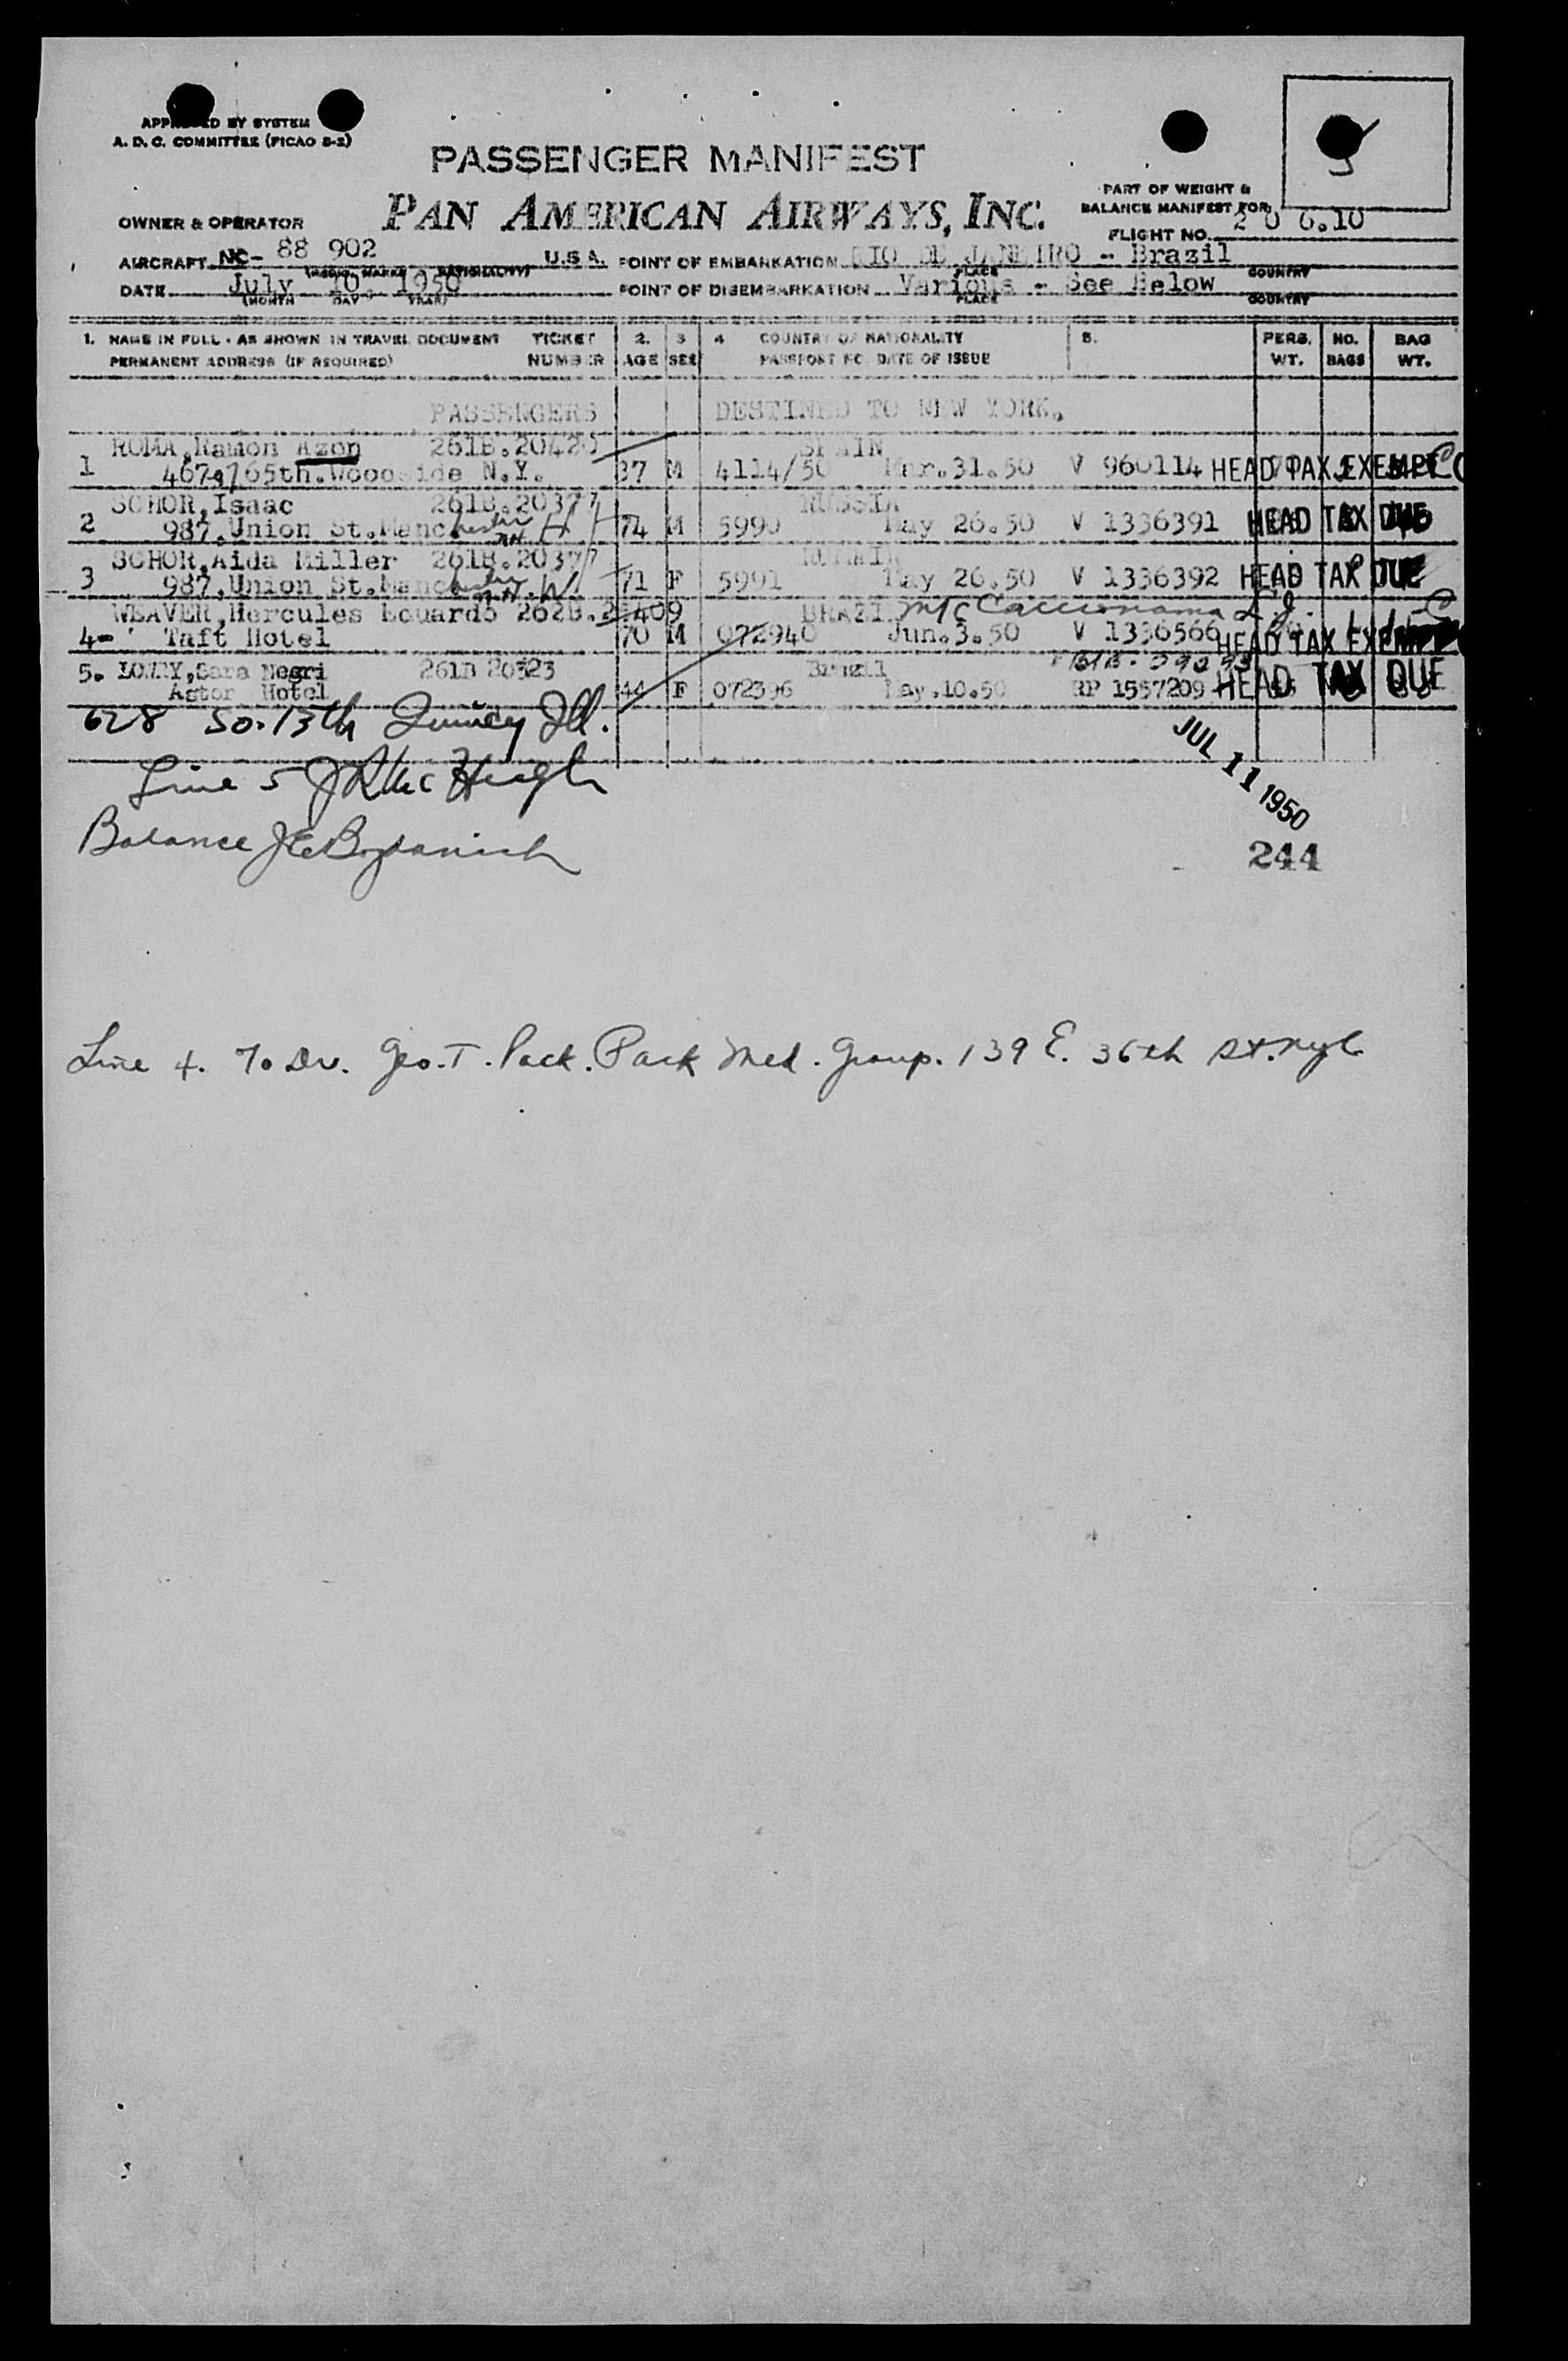 APPROVED BY SYSTEM
A. D. C. COMMITTEE (PICAO 8-2)
PASSENGER MANIFEST
PAN AMERICAN AIRWAYS, INC.
PART OF WEIGHT &
BALANCE MANIFEST FOR
FLIGHT NO. 2 0 6.10
OWNER & OPERATOR
AIRCRAFT NC- 88 902 U.S.A. POINT OF EMBARKATION RIO DE JANEIRO - Brazil
PLACE COUNTRY
DATE July 10, 1950 POINT OF DISEMBARKATION Various - See Below
(MONTH DAY YEAR) PLACE COUNTRY
1. NAME IN FULL - AS SHOWN IN TRAVEL DOCUMENT TICKET 2. 3 4 COUNTRY OF NATIONALITY 5. PERS. NO. BAG
PERMANENT ADDRESS (IF REQUIRED) NUMBER AGE SEX PASSPORT NO. DATE OF ISSUE WT. BAGS WT.
PASSENGERS DESTINED TO NEW YORK.
ROMA, Ramon Azon 261B.20420 SPAIN
1 65th. Woodside N.Y. 37 M 4114/50 Mar.31.50 V 960114 HEAD TAX EXEMPT
SCHOR, Isaac 261B.20377 RUSSIA
2 987, Union St. Manchester NH 74 M 5990 May 26.50 V 1336391 HEAD TAX DUE
SCHOR, Aida Miller 261B.20377
3 987, Union St. Manchester N.H. W 71 F 5991 May 26.50 V 1336392 HEAD TAX DUE
WEAVER, Hercules Eduardo 262B. BRAZIL
4- Taft Hotel 70 M 072940 Jun.3.50 V 1336566 HEAD TAX EXEMPT
5. Sara Negri 261B 20323 Brazil
Astor Hotel 44 F 072396 May.10.50 RP 1557209 HEAD TAX DUE
628 So. 13th Quincy Ill.
JUL 11 1950
Line 5 J R McHugh
Balance
244
Line 4. To Dr. Geo. T. Pack. Pack Med. Group. 139 E. 36th St. NYC